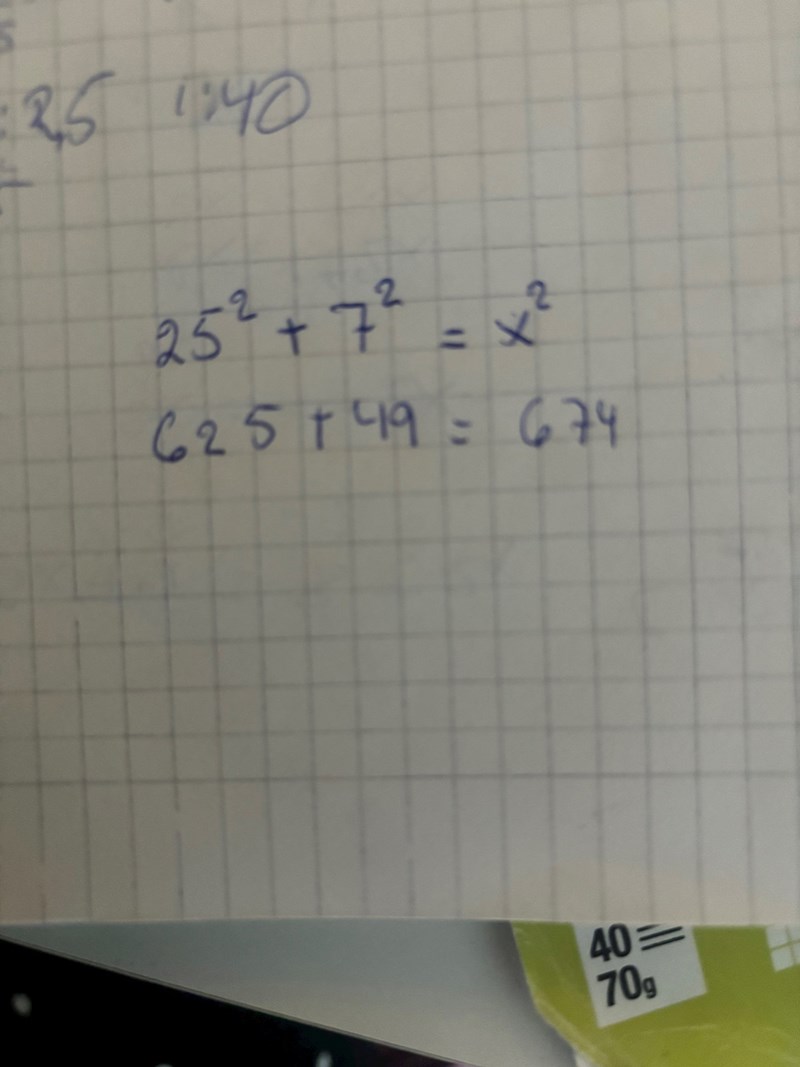 : 25 1:40
25² + 7² = x²
625 + 49 = 674
40
70g